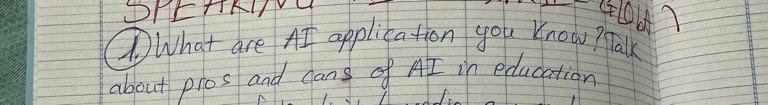 SPEAKING
1. What are AI application you know? Talk
about pros and cans of AI in education